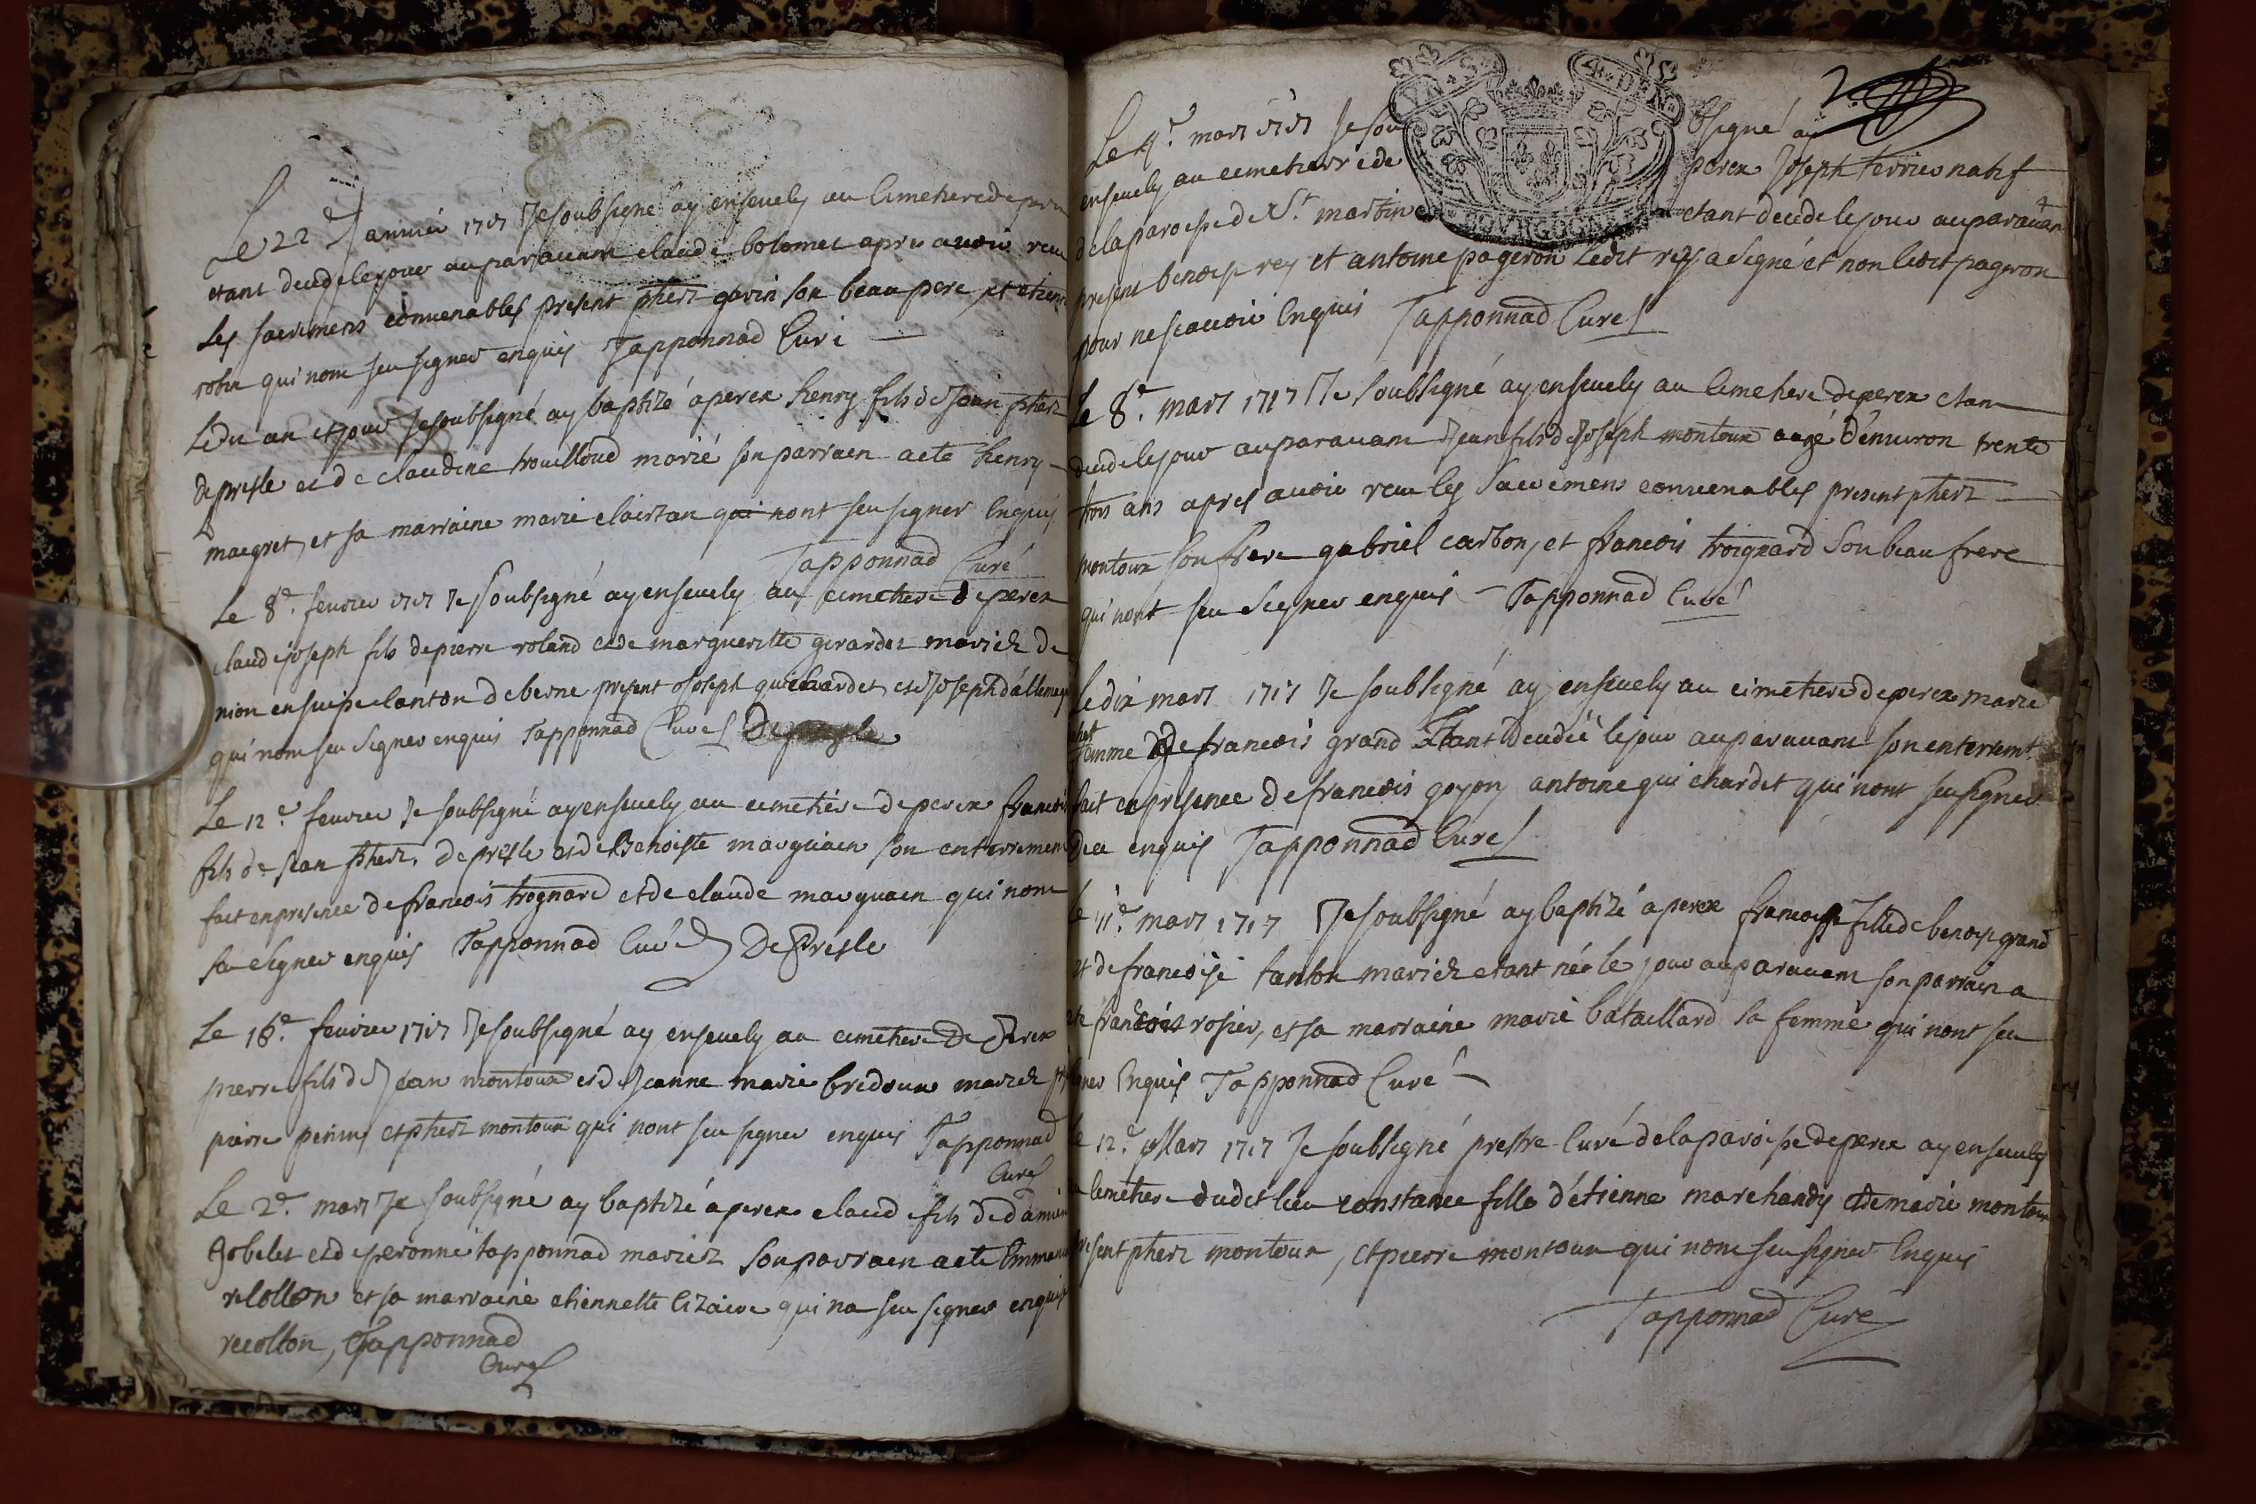 Le 22e Janvier 1717 Je soubsigné ay ensevely au Cimethere de perex
etant decedé le jour auparavant claude bolomet apres avoir receu
les sacremens convenables present phert gavin son beau pere et etienne
robin qui nont sceu signer enquis Tapponnad Curé
Ledit an et jour Je soubsigné ay baptizé a perex henry fils de Jean phert
depresle et de claudine trouilloud marié son parrain a eté henry
maegret et sa marraine marie clairtan qui nont sceu signer Enquis
Tapponnad Curé
Le 8e fevrier 1717 Je soubsigné ay ensevely au cimethere de perex
claude joseph fils de pierre roland et de marguerite girardet mariez de
nion en suisse canton de berne present joseph guichardet et joseph d'allemagne
qui nont sceu signer enquis Tapponnad Curé
Le 12e fevrier Je soubsigné ay ensevely au cimetiere de perex francois
fils de jean phert depresle et de Benoiste marguain son enterrement
fait en presence de francois trognard et de claude marguain qui nont
sceu signer enquis Tapponnad Curé DePresle
Le 16e fevrier 1717 Je soubsigné ay ensevely au cimethere De Perex
pierre fils de Jean montoux et de Jeanne marie bridoun mariez pnt
pierre perin et phert montoux qui nont sceu signer enquis Tapponnad
Curé
Le 2e mars Je soubsigné ay baptizé a perex claude fils de damien
gobelet et de peronne tapponnad mariez son parrain a eté Emmanuel
recollon et sa marraine etiennette lizaire qui na sceu signer enquis
recollon, Tapponnad
Curé
VN 4 DEN
BOURGOGNE
Le 4e mars 1717 Je soubsigné ay
ensevely au cimetierre de perex Joseph terrier natif
de la paroisse de St martin etant decedé le jour auparavant
present benoist rey et antoine pageron Ledit rey a signé et non ledit pageron
pour ne scavoir Enquis Tapponnad Curé
Le 8e mars 1717 Je soubsigné ay ensevely au Cimethere de perex etant
decedé le jour auparavant Jean fils de Joseph montoux aagé d'environ trente
trois ans apres avoir receu les Sacremens convenables present phert
montoux son frere gabriel carbon, et francois troignard son beau frere
qui nont sceu signer enquis Tapponnad Curé
Le dix mars 1717 Je soubsigné ay ensevely au cimetiere de perex marie
femme de francois grand Etant decedée le jour auparavant son enterremt
fait en presence de francois goyon antoine guichardet qui nont sceu signer
De ce enquis Tapponnad Curé
Le 11e mars 1717 Je soubsigné ay baptizé a perex francoise fille de benoist grand
et de francoise tanton mariez etant née le jour auparavant son parrain a
eté francois rosier, et sa marraine marie bataillard sa femme qui nont sceu
signer Enquis Tapponnad Curé
Le 12e Mars 1717 Je soubsigné prestre Curé de la paroisse de perex ay ensevely
au cemetiere dudit lieu constance fille d'etienne marchandy et de marie montoux
present phert montoux, et pierre montoux qui nont sceu signer Enquis
Tapponnad Curé